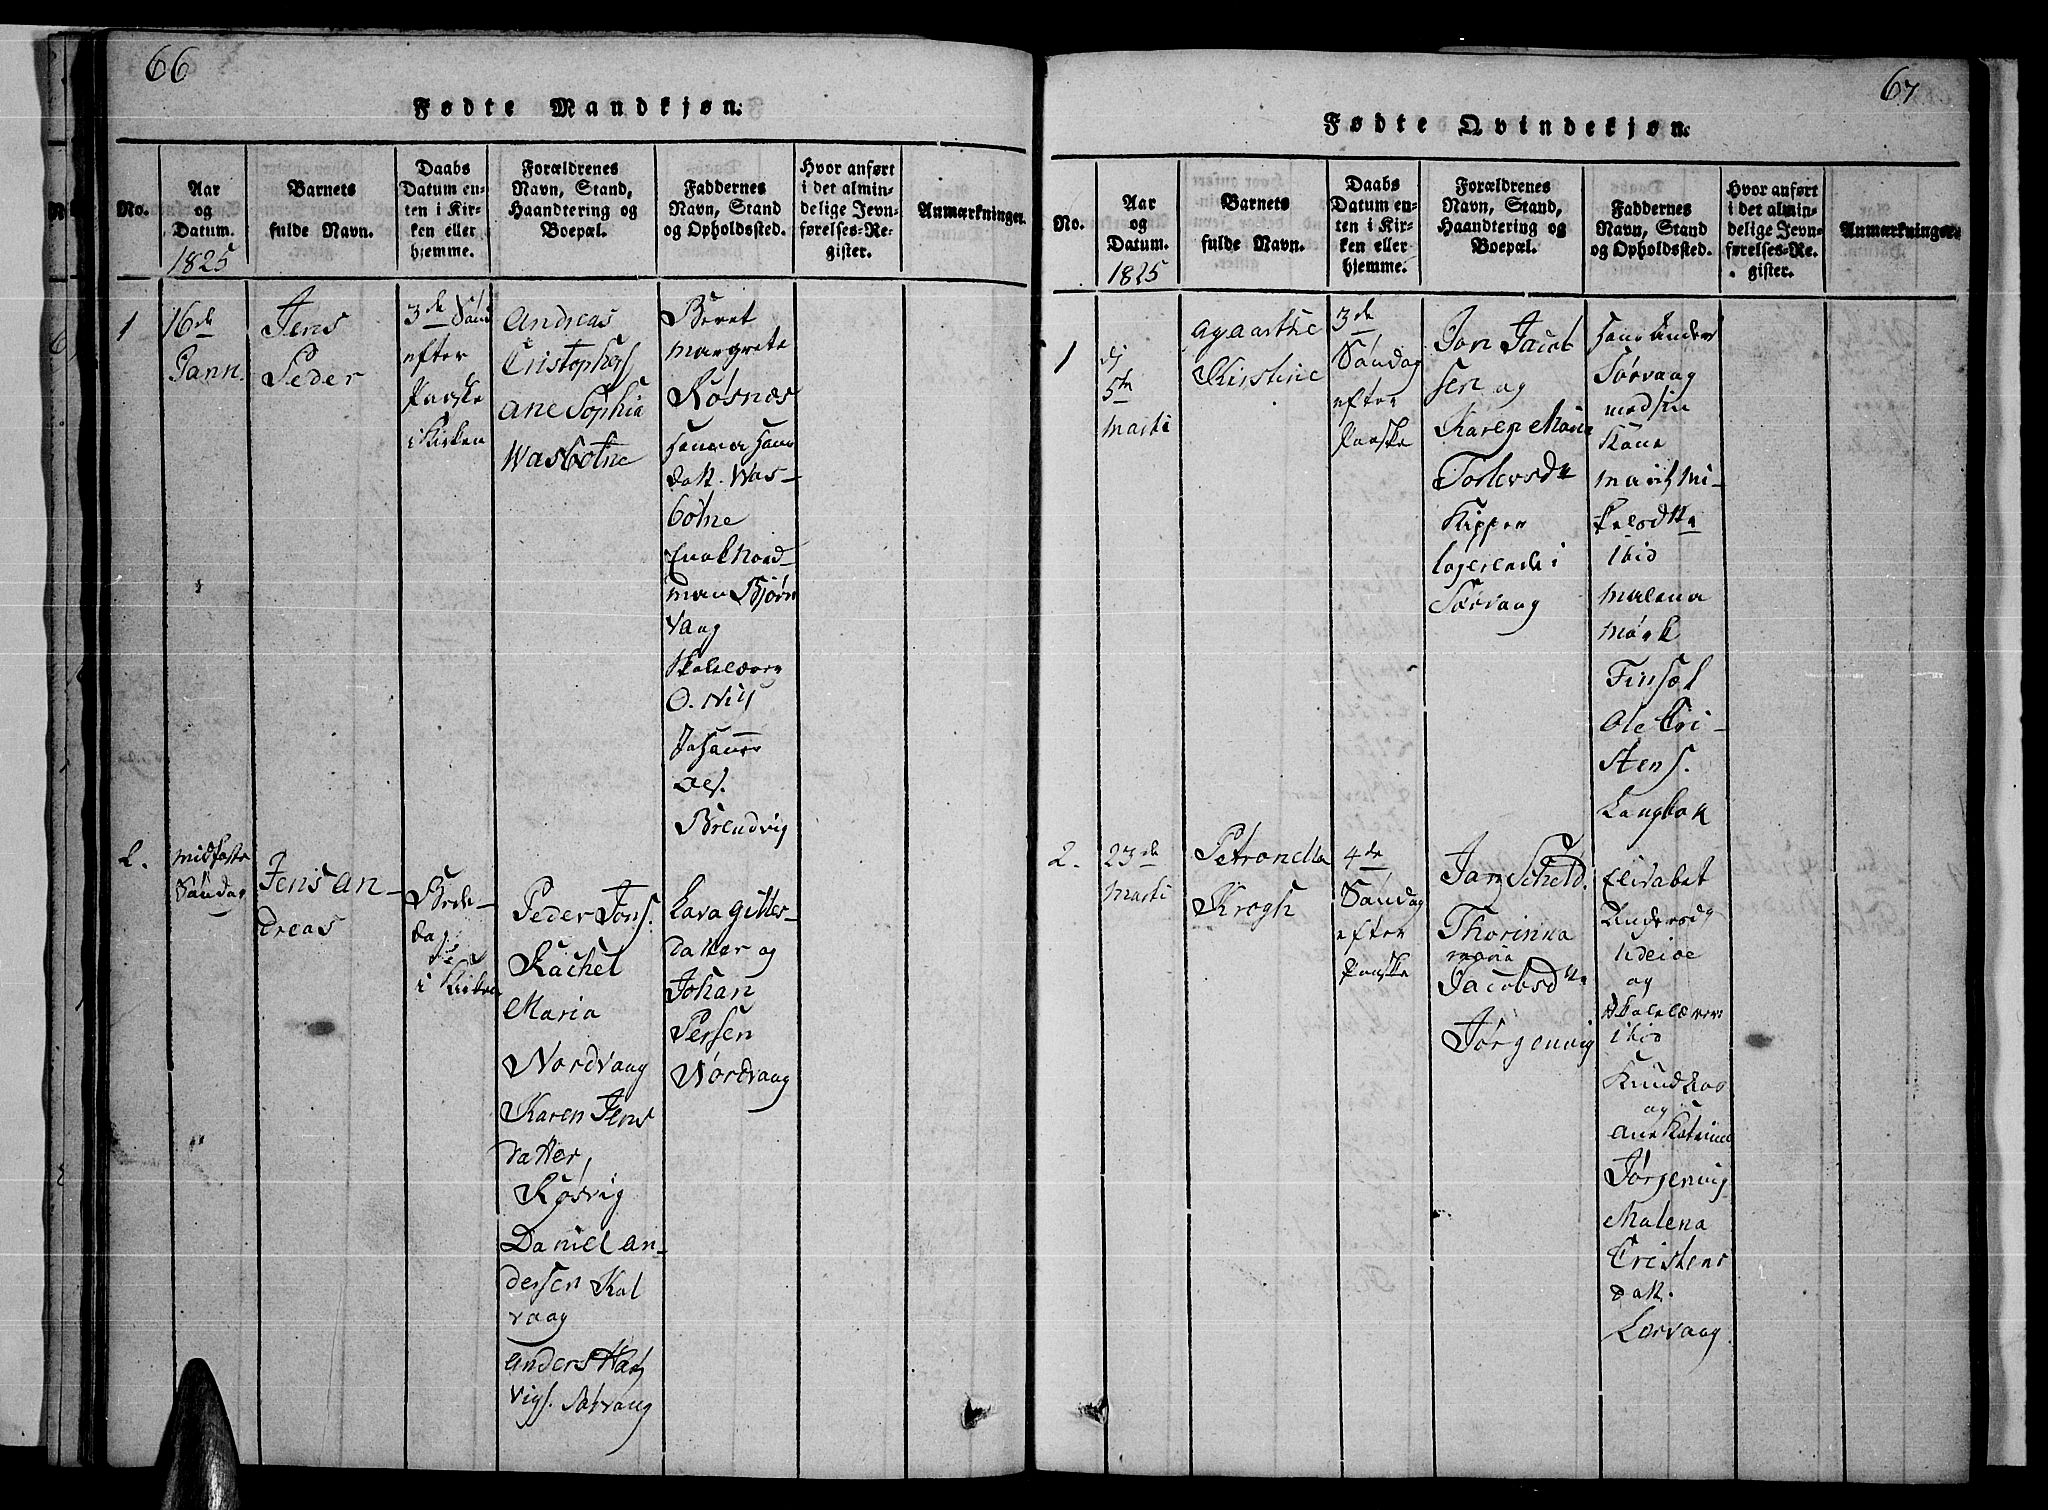 66
Fødte Mandkjøn.
No.
Aar
og
Datum.
1825
Barnets
fulde Navn.
Daabs
Datum en-
ten i Kir-
ken eller
hjemme.
Forældrenes
Navn, Stand,
Haandtering og
Boepæl.
Faddernes
Navn, Stand
og Opholdssted.
Hvor anført
i det almin-
delige Jevn-
førelses-Re-
gister.
Anmærkninger.
1
16de
Jann.
Jens
Peder
3de Sønd
efter
Paaske
i Kirken
Andreas
Cristophers
Ane Sophia
Wasbotne
Beret
Margrete
Røsnæs
Hanna Hans
datt. Was-
botne
Nord-
man Bjørn
vaag
Skolelærer
O. Nils
Johannes
Ols.
Brendvig
2.
Midfaste
Søndag
Jens An-
dreas
Bede-
dag
i Kirken
Peder Jons.
Rachel
Maria
Nordvaag
Karen Jens
datter
Røsvig
Daniel An-
dersen Kal
vaag
Anders Hart
vigs. Sørvaag
Lava Gitters-
datter og
Johan
Persen
Nordvaag
67
Fødte Qvindekjøn.
No.
Aar
og
Datum.
1825
Barnets
fulde Navn.
Daabs
Datum en-
ten i Kir-
ken eller
hjemme.
Forældrenes
Navn, Stand,
Haandtering og
Boepæl.
Faddernes
Navn, Stand
og Opholdssted.
Hvor anført
i det almin-
delige Jevn-
førelses-Re-
gister.
Anmærkninger.
1
dj
5te
Marti
Agaarthe
Kirstine
3de
Søndag
efter
Paaske
Jon Jacob
sen og
Karen Maria
Torlevsdtr
Kipper
logerende i
Sørvaag
Hans Ander
Sørvaag
med sin
Kone
Marit Mi-
kelsdtter
ibid
Malena
Mørk
Finsæt
Ole Cri-
stens.
Langbak
2.
23de
Marti
Petronella
Krogh
4de
Søndag
efter
Paaske
Jan Scheld.
Thorinna
Maria
Jacobsdtr
Jørgenvig
Elisabet
Andersdtr
og
Skolelærer
ibid
og
Ane Katrine
Jørgenvig
Malena
Cristens
datt.
Lervaag